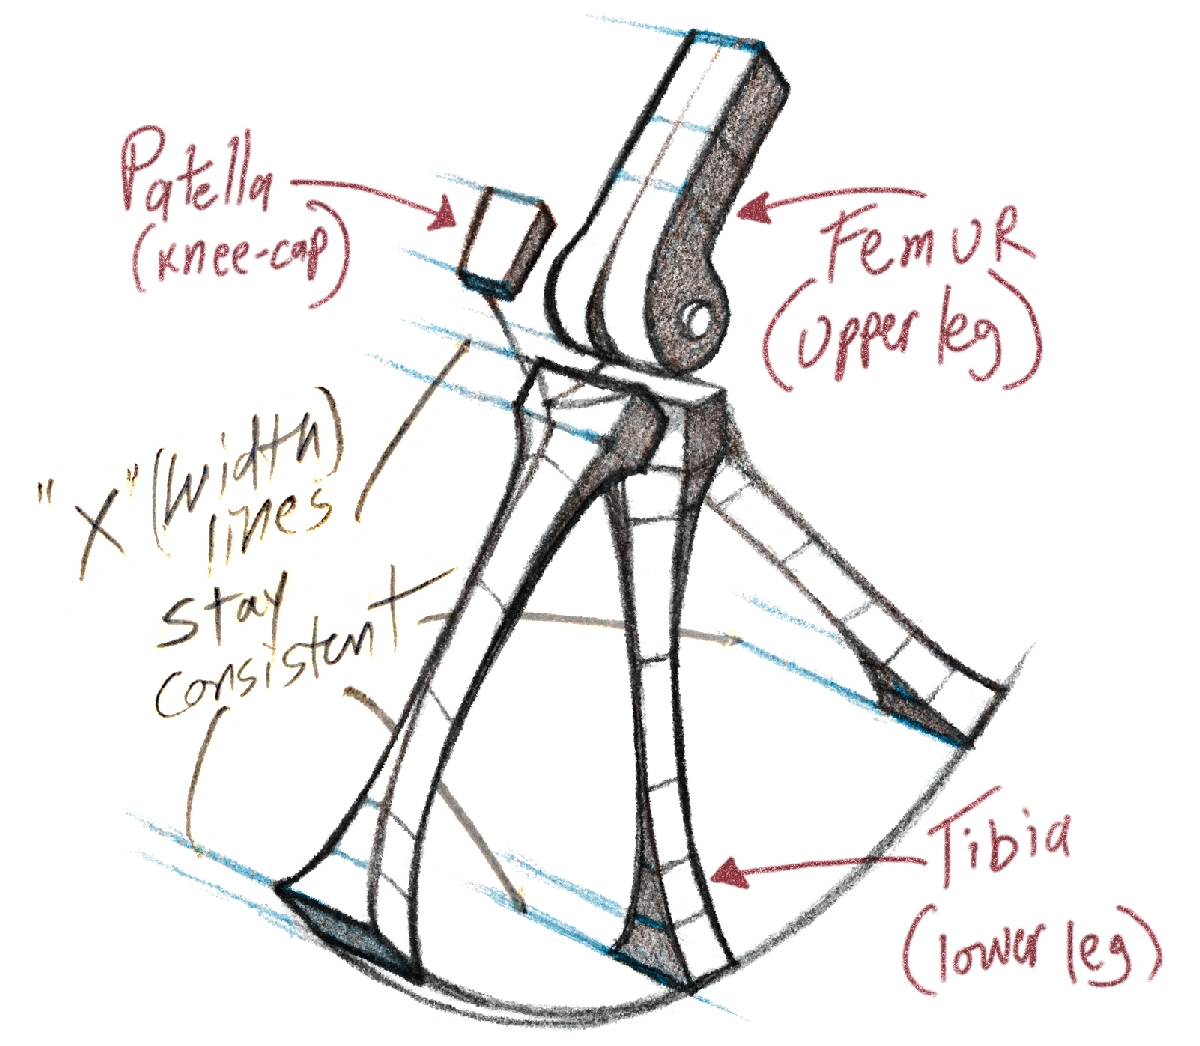 Patella
(knee-cap)
FemUR
(upper leg)
"X" (width)
lines
stay
consistent
Tibia
(lower leg)